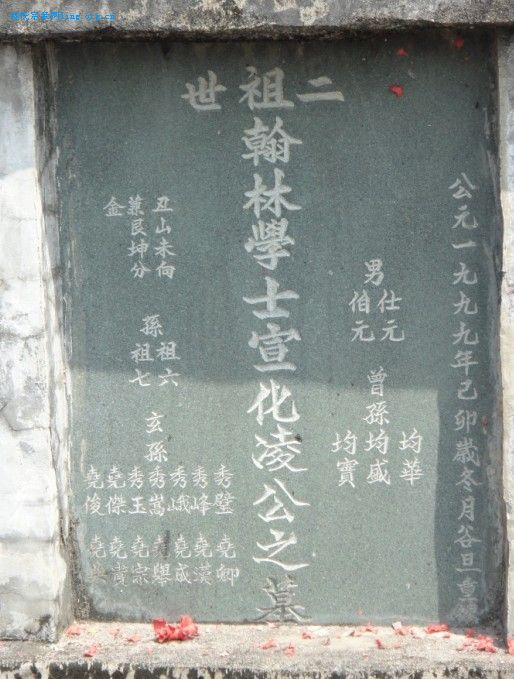 二祖世
公元一九九九年己卯歲冬月谷旦重
男 仕元
伯元
曾孫 均華
均盛
均寶
翰林學士宣化凌公之墓
丑山未向
兼艮坤分
金
孫 祖六
祖七
玄孫
秀璧 秀峰 秀峨 秀嵩 秀玉 堯傑 堯俊
堯卿 堯漢 堯成 堯舉 堯宗 堯